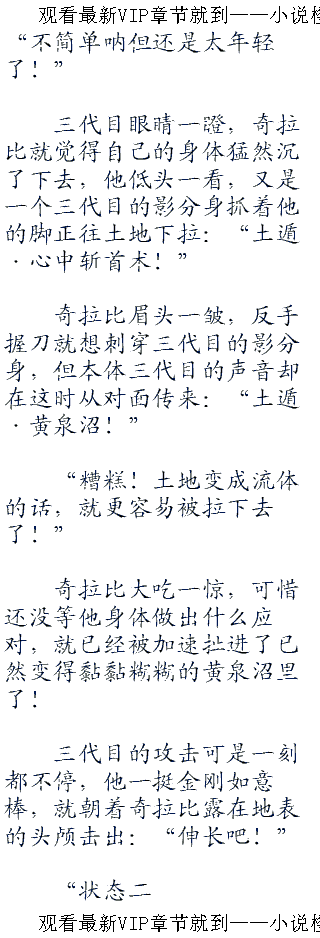 观看最新VIP章节就到——小说
“不简单呐但还是太年轻
了！”
三代目眼睛一瞪，奇拉
比就觉得自己的身体猛然沉
了下去，他低头一看，又是
一个三代目的影分身抓着他
的脚正往土地下拉：“土遁
·心中斩首术！”
奇拉比眉头一皱，反手
握刀就想刺穿三代目的影分
身，但本体三代目的声音却
在这时从对面传来：“土遁
·黄泉沼！”
“糟糕！土地变成流体
的话，就更容易被拉下去
了！”
奇拉比大吃一惊，可惜
还没等他身体做出什么应
对，就已经被加速扯进了已
然变得黏黏糊糊的黄泉沼里
了！
三代目的攻击可是一刻
都不停，他一挺金刚如意
棒，就朝着奇拉比露在地表
的头颅击出：“伸长吧！”
“状态二
观看最新VIP章节就到——小说